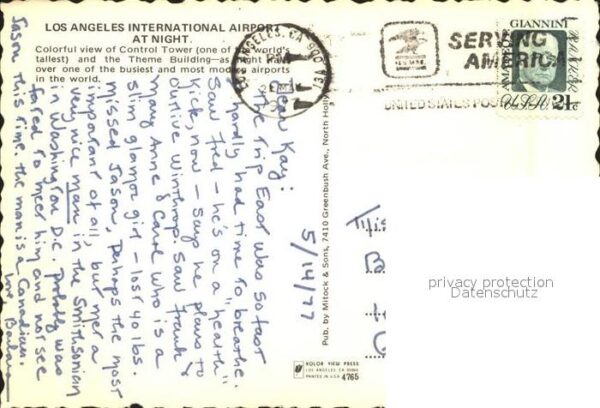 LOS ANGELES INTERNATIONAL AIRPORT
AT NIGHT.
Colorful view of Control Tower (one of the world's
tallest) and the Theme Building—as night falls
over one of the busiest and most modern airports
in the world.
LOS ANGELES, CA 900
PM
SERVING
AMERICA
UNITED STATES POS
GIANNINI
USA 21c
5/14/77
Dear Kay:
The trip East was so fast
I hardly had time to breathe.
Saw Fred - he's on a "health"
Kick, now - says he plans to
outlive Winthrop. Saw Frank,
Mary Anne & Carol who is a
slim glamor girl - lost 40 lbs.
Missed Jason. Perhaps the most
important of all, but met a
very nice man in the Smithsonian
in Washington D.C. Probably was
fated to meet him and not see
Jason this time. The man is a Canadian.
Love,
Pub. by Mitock & Sons, 7410 Greenbush Ave., North Holly
KOLOR VIEW PRESS
LOS ANGELES, CA
PRINTED IN U.S.A.
4765
privacy protection
Datenschutz